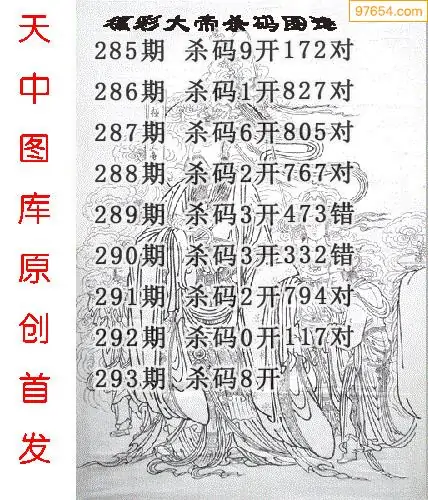 97654.com
福彩大帝杀码图迷
285期 杀码9开172对
286期 杀码1开827对
287期 杀码6开805对
288期 杀码2开767对
289期 杀码3开473错
290期 杀码3开332错
291期 杀码2开794对
292期 杀码0开117对
293期 杀码8开
天中图库原创首发